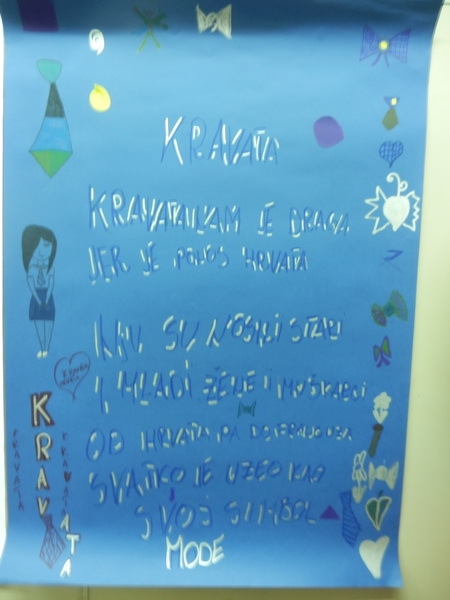 KRAVATA
KRAVATA NAM JE DRAGA
JER JE PONOS HRVATA
NJU SU NOSILI STARI
I MLADI ŽENE I MUŠKARCI
OD HRVATA PA DO FRANCUZA
SVATKO JE UZEO KAO
SVOJ SIMBOL
MODE
KRAVATA
KRAVATA
KRAVATA